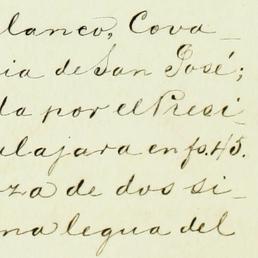 lanco, Cova_
ia de San José;
da por el Presi_
alajara en fs. 45.
za de dos si_
na legua del